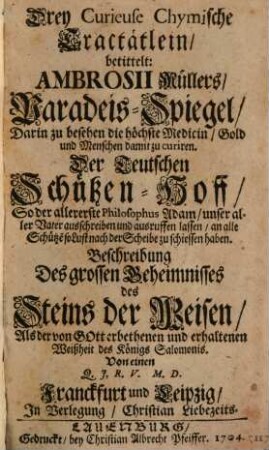 Drey Curieuse Chymische
Tractätlein/
betittelt:
AMBROSII Müllers/
Paradeis-Spiegel/
Darin zu besehen die höchste Medicin/ Gold
und Menschen damit zu curiren.
Der Teutschen
Schützen-Hoff/
So der allererste Philosophus Adam/ unser al-
ler Vater ausschreiben und ausruffen lassen/ an alle
Schütz̃ so Lust nach der Scheibe zu schiessen haben.
Beschreibung
Des grossen Geheimnisses
des
Steins der Weisen/
Als der von GOtt erbethenen und erhaltenen
Weißheit des Königs Salomonis.
Von einen
Q. J. R. V. M. D.
Franckfurt und Leipzig/
In Verlegung/ Christian Liebezeits.
LAUENBURG/
Gedruckt/ bey Christian Albrecht Pfeiffer. 1704.